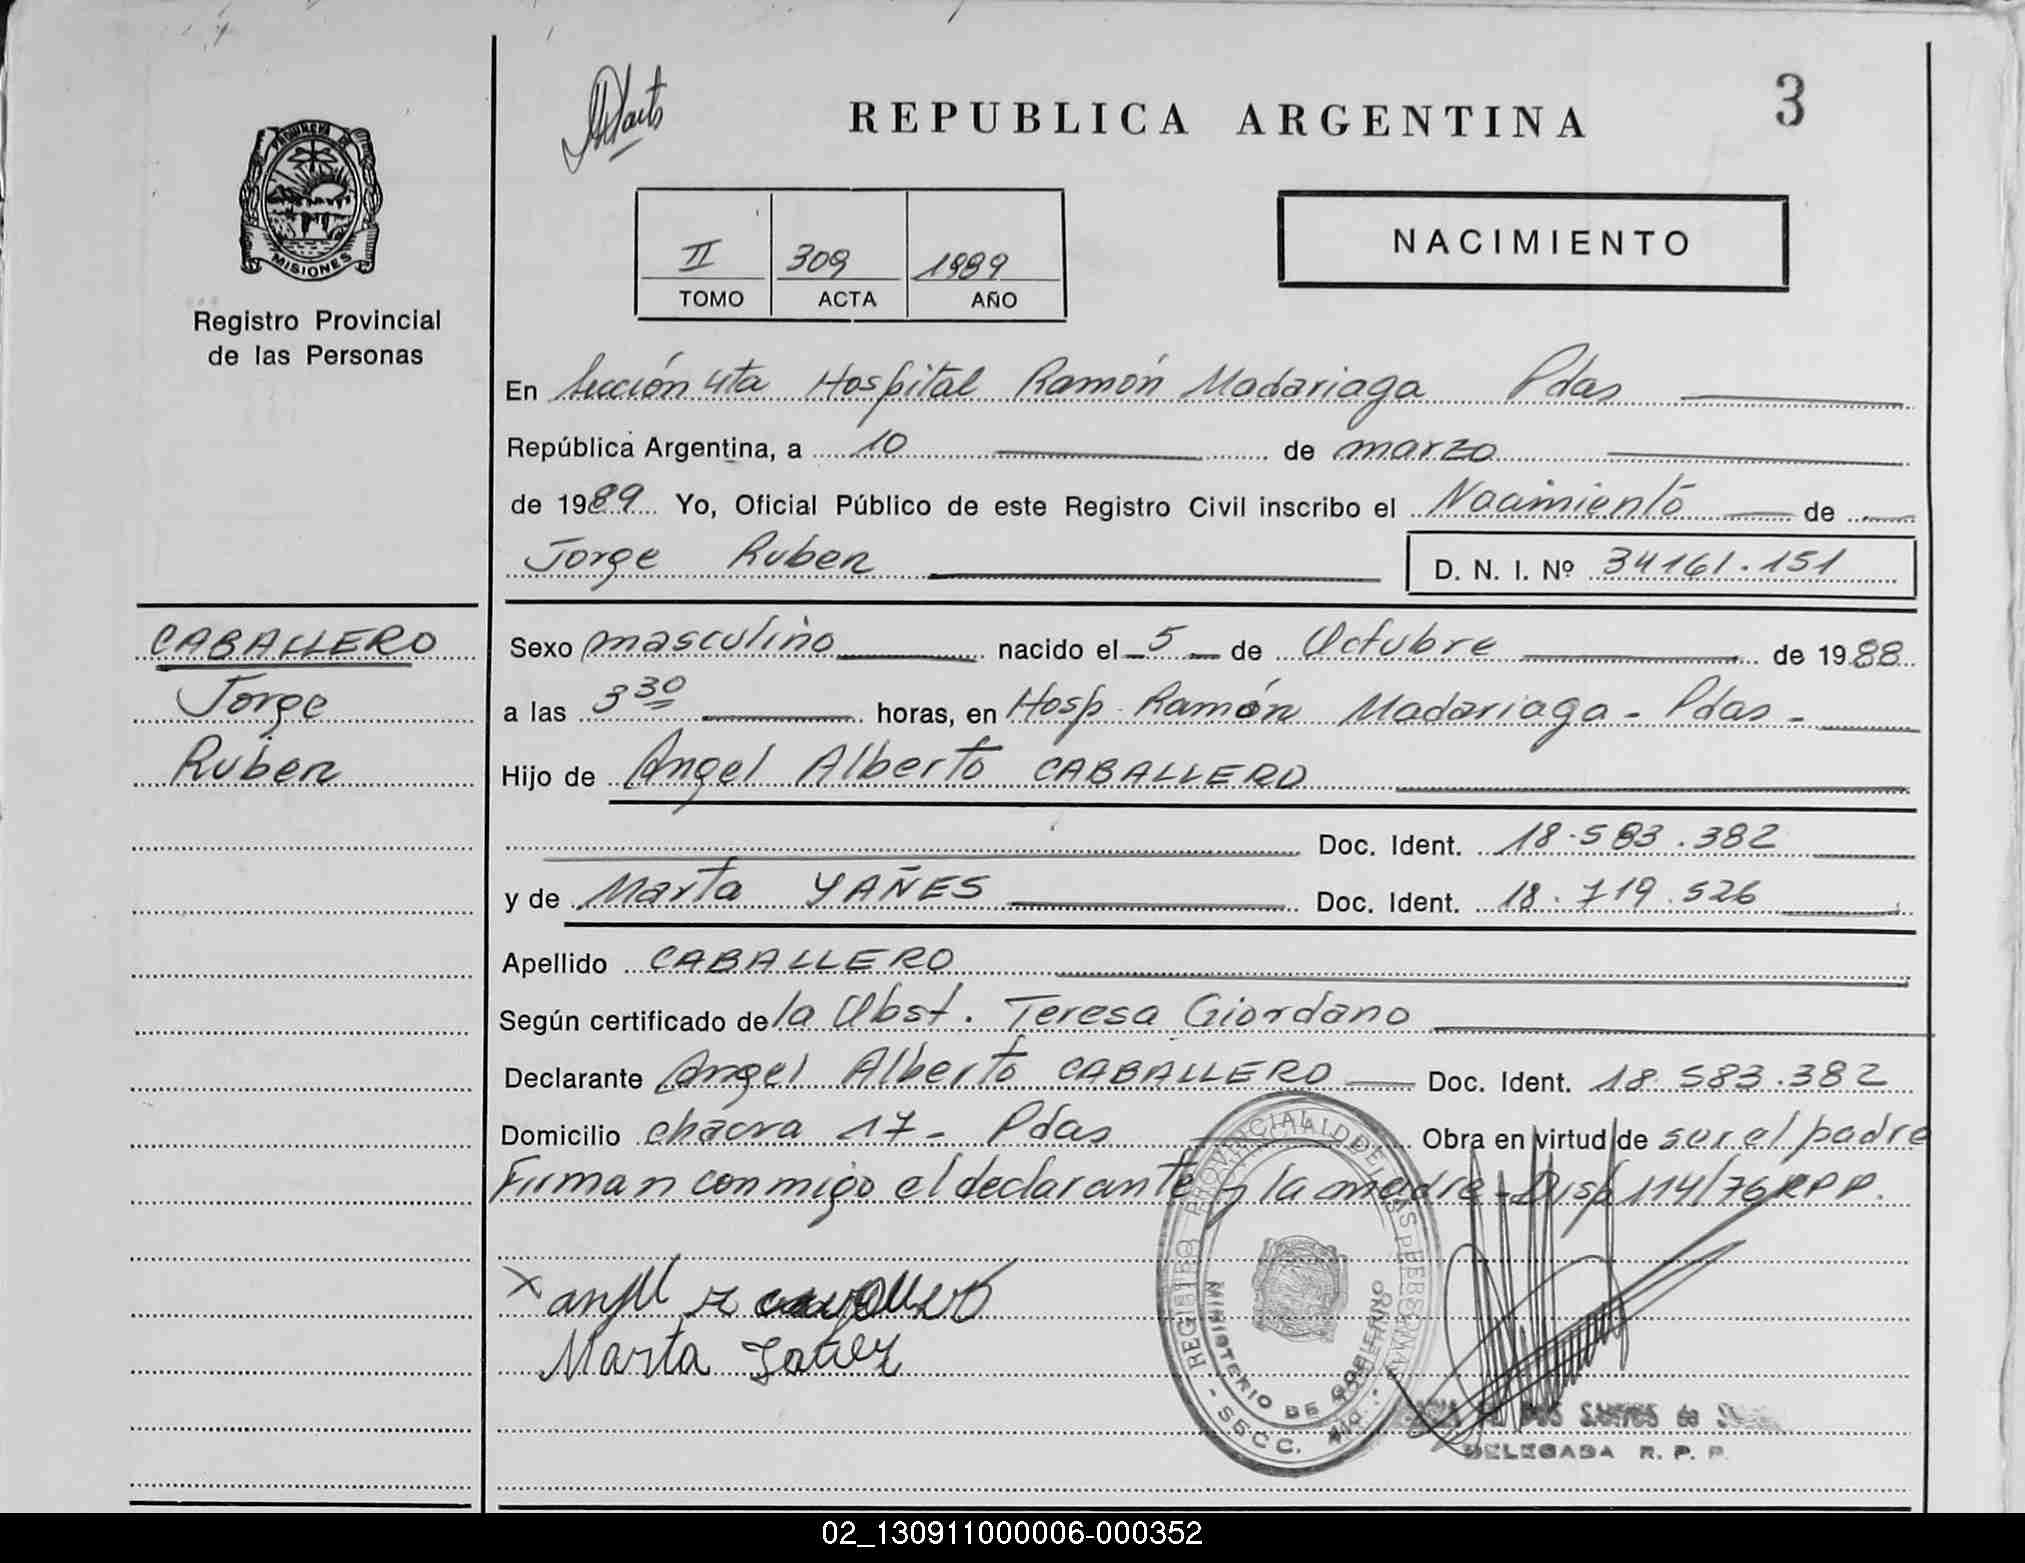 REPUBLICA ARGENTINA
3
PROVINCIA DE
MISIONES
Registro Provincial
de las Personas
II 309 1989
TOMO ACTA AÑO
NACIMIENTO
En Sección 4ta Hospital Ramón Madariaga Pdas
República Argentina, a 10 de marzo
de 1989 Yo, Oficial Público de este Registro Civil inscribo el Nacimiento de
Jorge Ruben D. N. I. Nº 34161.151
CABALLERO
Jorge
Ruben
Sexo masculino nacido el 5 de Octubre de 1988
a las 3 30 horas, en Hosp. Ramón Madariaga - Pdas -
Hijo de Angel Alberto CABALLERO
Doc. Ident. 18.583.382
y de Marta YAÑES Doc. Ident. 18.719.526
Apellido CABALLERO
Según certificado de la Obst. Teresa Giordano
Declarante Angel Alberto CABALLERO Doc. Ident. 18.583.382
Domicilio chacra 17 - Pdas Obra en virtud de ser el padre
Firman conmigo el declarante y la madre - Disp 114/76 RPP.
Marta
REGISTRO PROVINCIAL DE LAS PERSONAS
MINISTERIO DE GOBIERNO
SECC.
DOS SANTOS de
DELEGADA R. P. P.
02_130911000006-000352